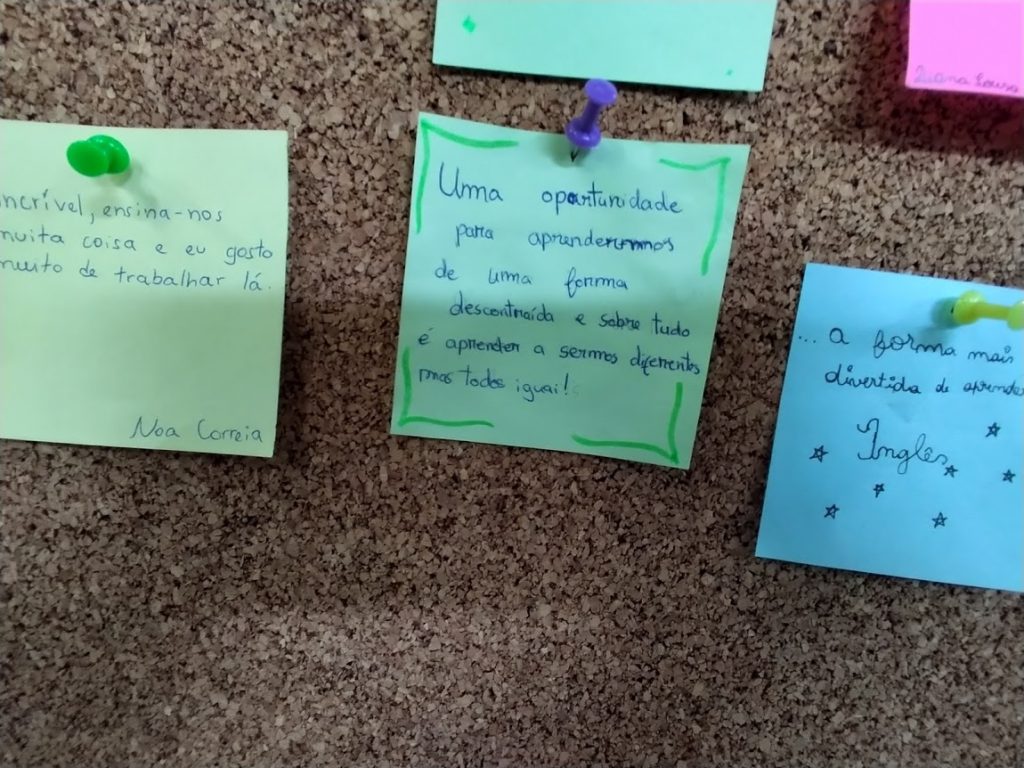 incrível, ensina-nos
muita coisa e eu gosto
muito de trabalhar lá.
Noa Correia
Uma oportunidade
para aprendermmos
de uma forma
descontraída e sobre tudo
é aprender a sermos diferentes
mas todos iguai!
... a forma mais
divertida de aprender
Inglês
Sousa